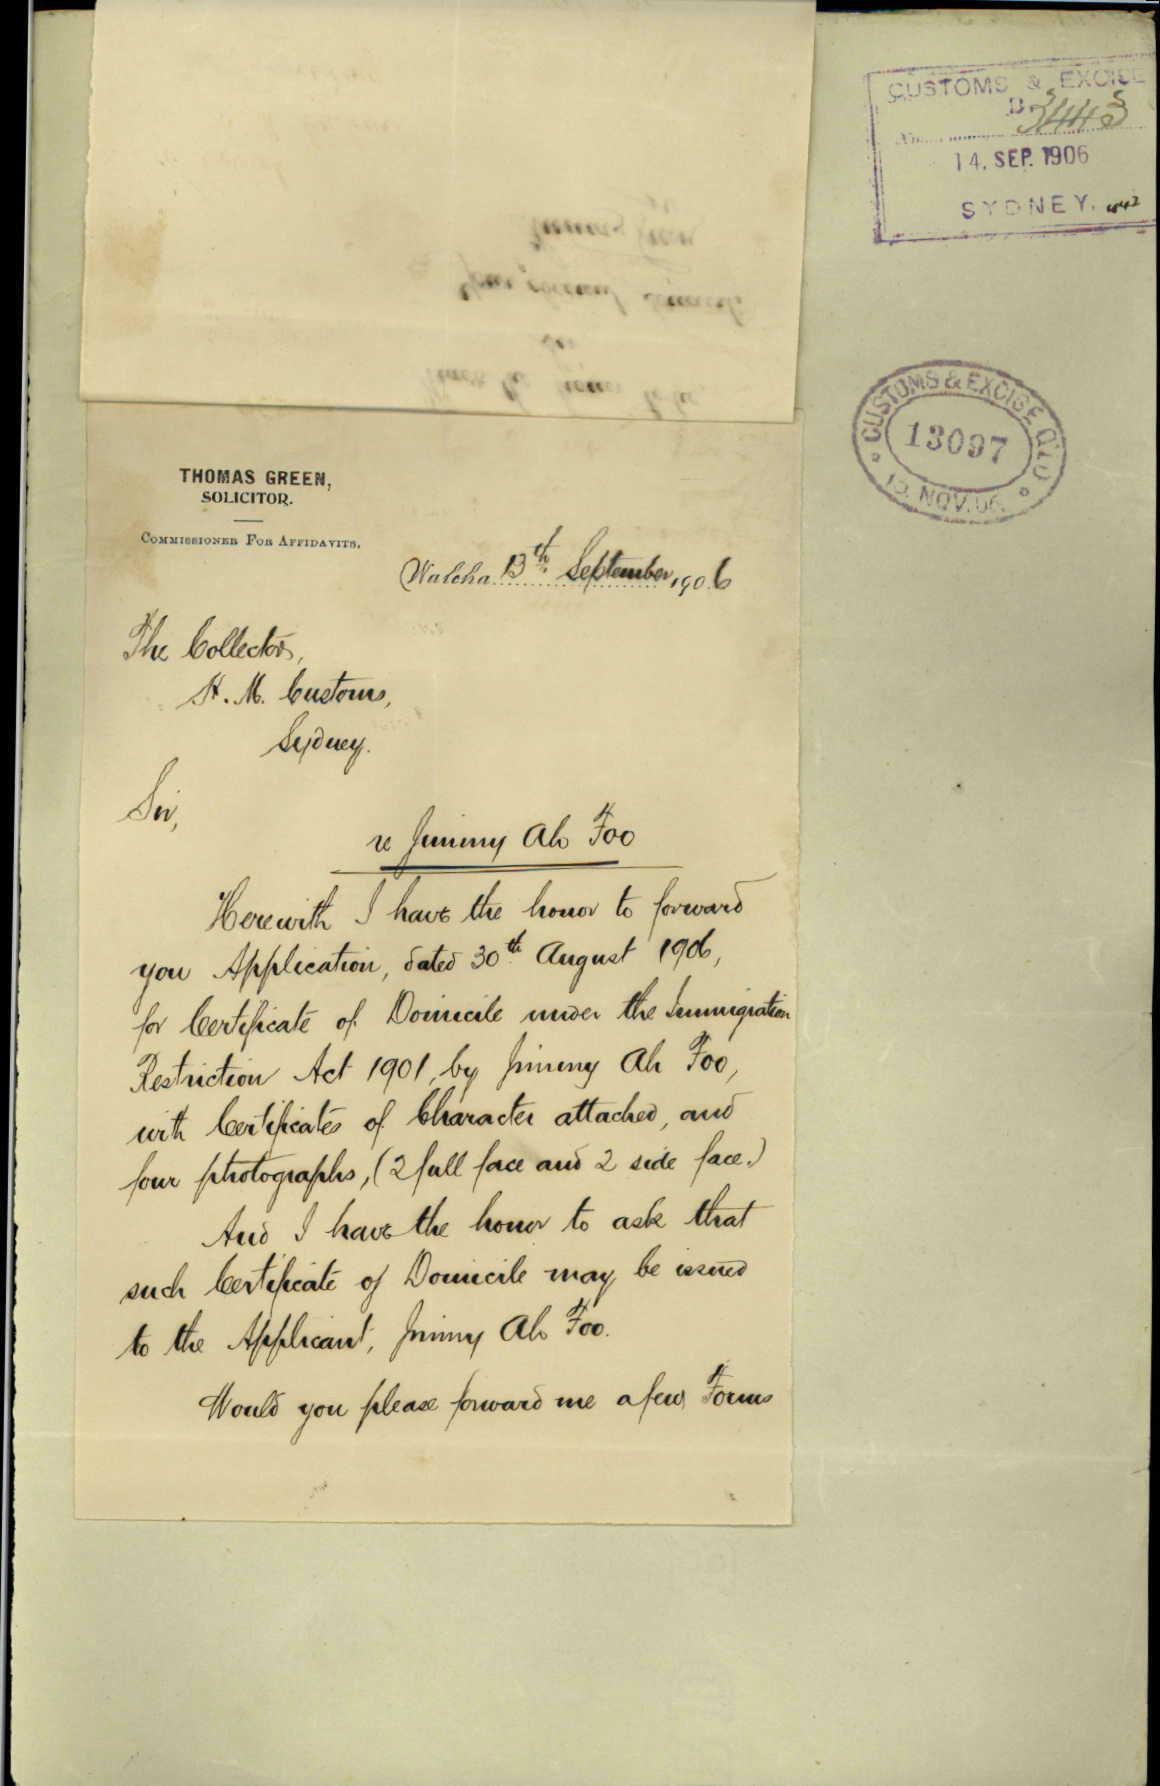 CUSTOMS & EXCISE
14. SEP. 1906
SYDNEY.
CUSTOMS & EXCISE QLD
13097
NOV. 06
THOMAS GREEN,
SOLICITOR.
COMMISSIONER FOR AFFIDAVITS.
Walcha 13th September, 1906
The Collector,
H. M. Customs,
Sydney.
Sir,
re Jimmy Ah Foo
Herewith I have the honor to forward
you Application, dated 30th August 1906,
for Certificate of Domicile under the Immigration
Restriction Act 1901, by Jimmy Ah Foo,
with Certificates of Character attached, and
four photographs, (2 full face and 2 side face.)
And I have the honor to ask that
such Certificate of Domicile may be issued
to the Applicant, Jimmy Ah Foo.
Would you please forward me a few Forms